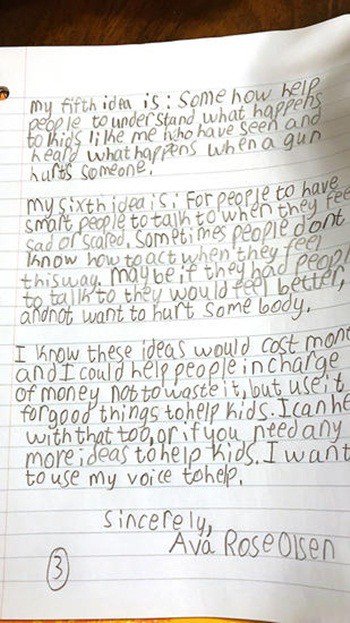 My fifth idea is: Some how help
people to understand what happens
to kids like me who have seen and
heard what happens when a gun
hurts someone.
My sixth idea is: For people to have
smart people to talk to when they fee
sad or scared. Sometimes people dont
know how to act when they feel
this way. Maybe if they had peopl
to talk to they would feel better,
and not want to hurt some body.
I know these ideas would cost mon
and I could help people in charge
of money not to waste it, but use it
for good things to help kids. I can he
with that too, or if you need any
more ideas to help kids. I want
to use my voice to help.
Sincerely,
Ava Rose Olsen
3